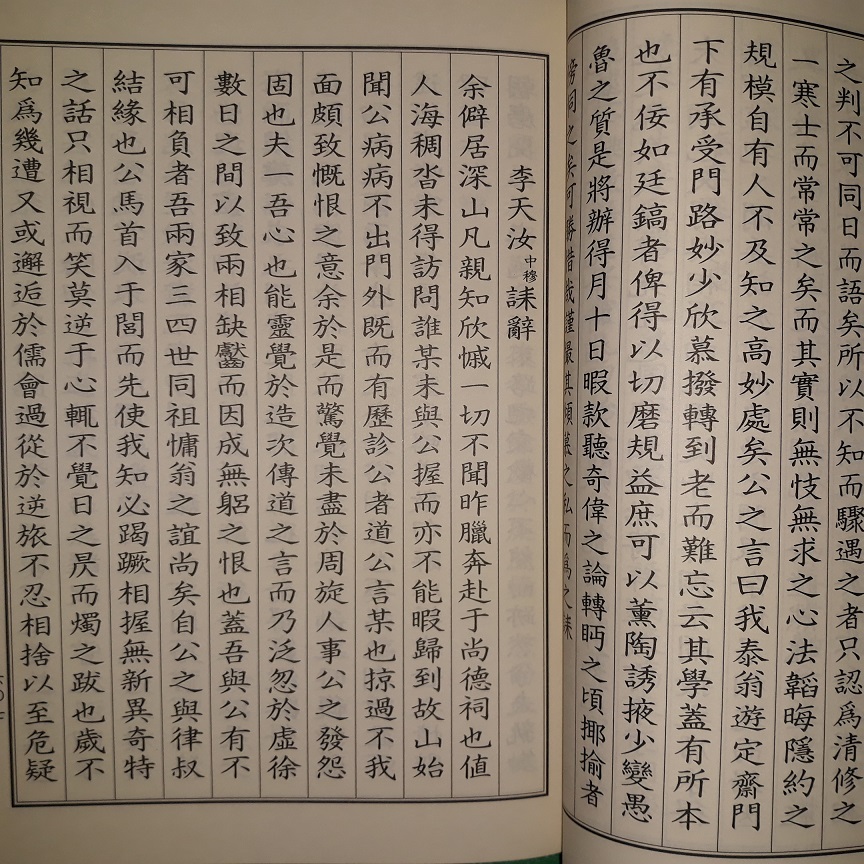 之判不可同日而語矣所以不知而驟遇之者只認爲清修之
一寒士而常常之矣而其實則無忮無求之心法韜晦隱約之
規模自有人不及知之高妙處矣公之言曰我泰翁遊定齋門
下有承受門路妙少欣慕撥轉到老而難忘云其學蓋有所本
也不佞如廷鎬者俾得以切磨規益庶可以薰陶誘掖少變愚
魯之質是將辦得月十日暇款聽奇偉之論轉眄之頃揶揄者
旁伺之矣可勝惜哉謹最其傾慕之私而爲之誄
李天汝中穆誄辭
余僻居深山凡親知欣慽一切不聞昨臘奔赴于尚德祠也値
人海稠沓未得訪問誰某未與公握而亦不能暇歸到故山始
聞公病病不出門外既而有歷診公者道公言某也掠過不我
面頗致慨恨之意余於是而驚覺未盡於周旋人事公之發怨
固也夫一吾心也能靈覺於造次傳道之言而乃泛忽於虛徐
數日之間以致兩相缺齾而因成無躳之恨也蓋吾與公有不
可相負者吾兩家三四世同祖慵翁之誼尚矣自公之與律叔
結緣也公馬首入于閭而先使我知必蹋蹶相握無新異奇特
之話只相視而笑莫逆于心輒不覺日之昃而燭之跋也歲不
知爲幾遭又或邂逅於儒會過從於逆旅不忍相捨以至危疑